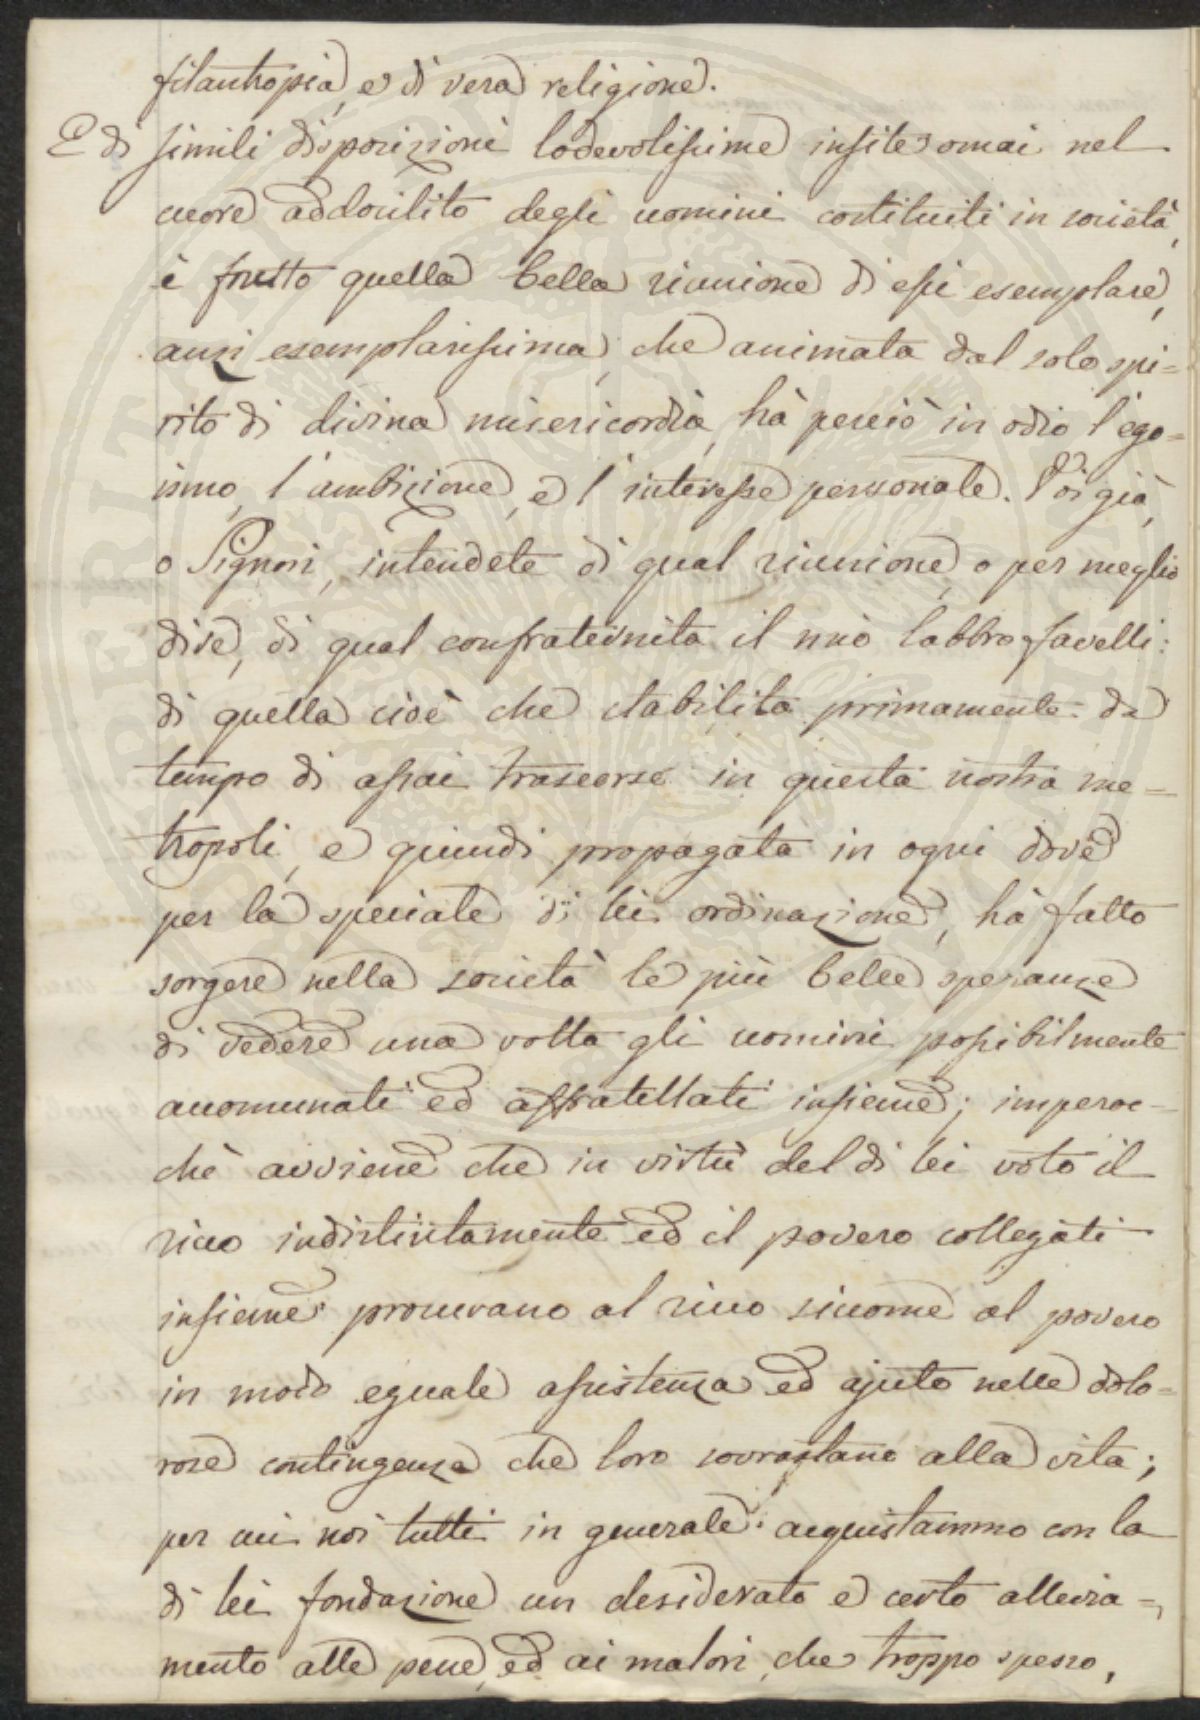 filantropia, e di vera religione.
E di simili disposizioni lodevolissime insite omai nel
cuore addocilito degli uomini costituiti in società,
è frutto quella bella riunione di essi esemplare,
anzi esemplarissima, che animata dal solo spi=
rito di divina misericordia, hà perciò in odio l'ego=
ismo, l'ambizione, e l'interesse personale. Voi già,
o Signori, intendete di qual riunione, o per meglio
dire, di qual confraternita il mio labbro favelli:
di quella cioè che stabilita primamente da
tempo di assai trascorso in questa nostra me=
tropoli, e quindi propagata in ogni dove
per la speciale di lei ordinazione, hà fatto
sorgere nella società le più belle speranze
di vedere una volta gli uomini possibilmente
accomunati ed affratellati insieme; imperoc=
chè avviene che in virtù del di lei voto il
ricco indistintamente ed il povero collegati
insieme procurano al ricco siccome al povero
in modo eguale assistenza ed ajuto nelle dolo=
rose contingenze che loro sovrastano alla vita;
per cui noi tutti in generale acquistammo con la
di lei fondazione un desiderato e certo allevia=
mento alle pene, ed ai malori, che troppo spesso,